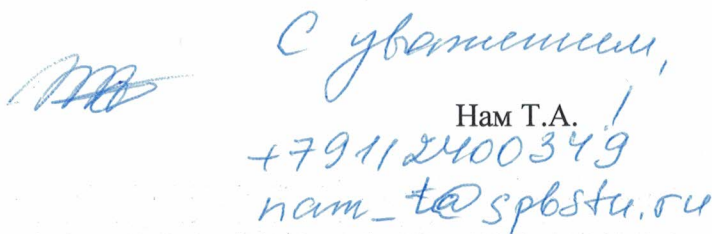 С уважением,
Нам Т.А.
+79112400349
nam_ta@spbstu.ru